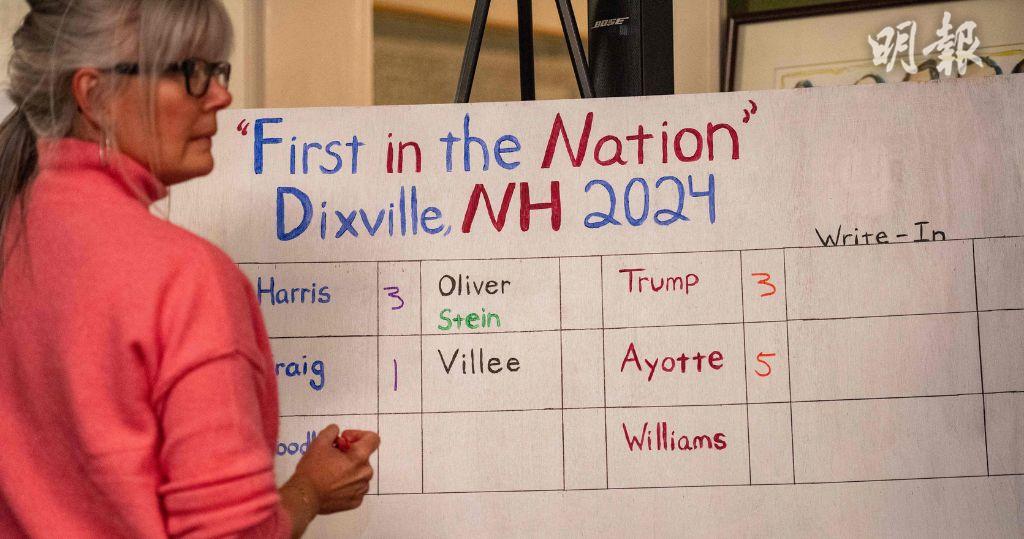 BOSE
明報
"First in the Nation"
Dixville, NH 2024
Write-In
Harris 3 Oliver Trump 3
Stein
raig 1 Villee Ayotte 5
Williams